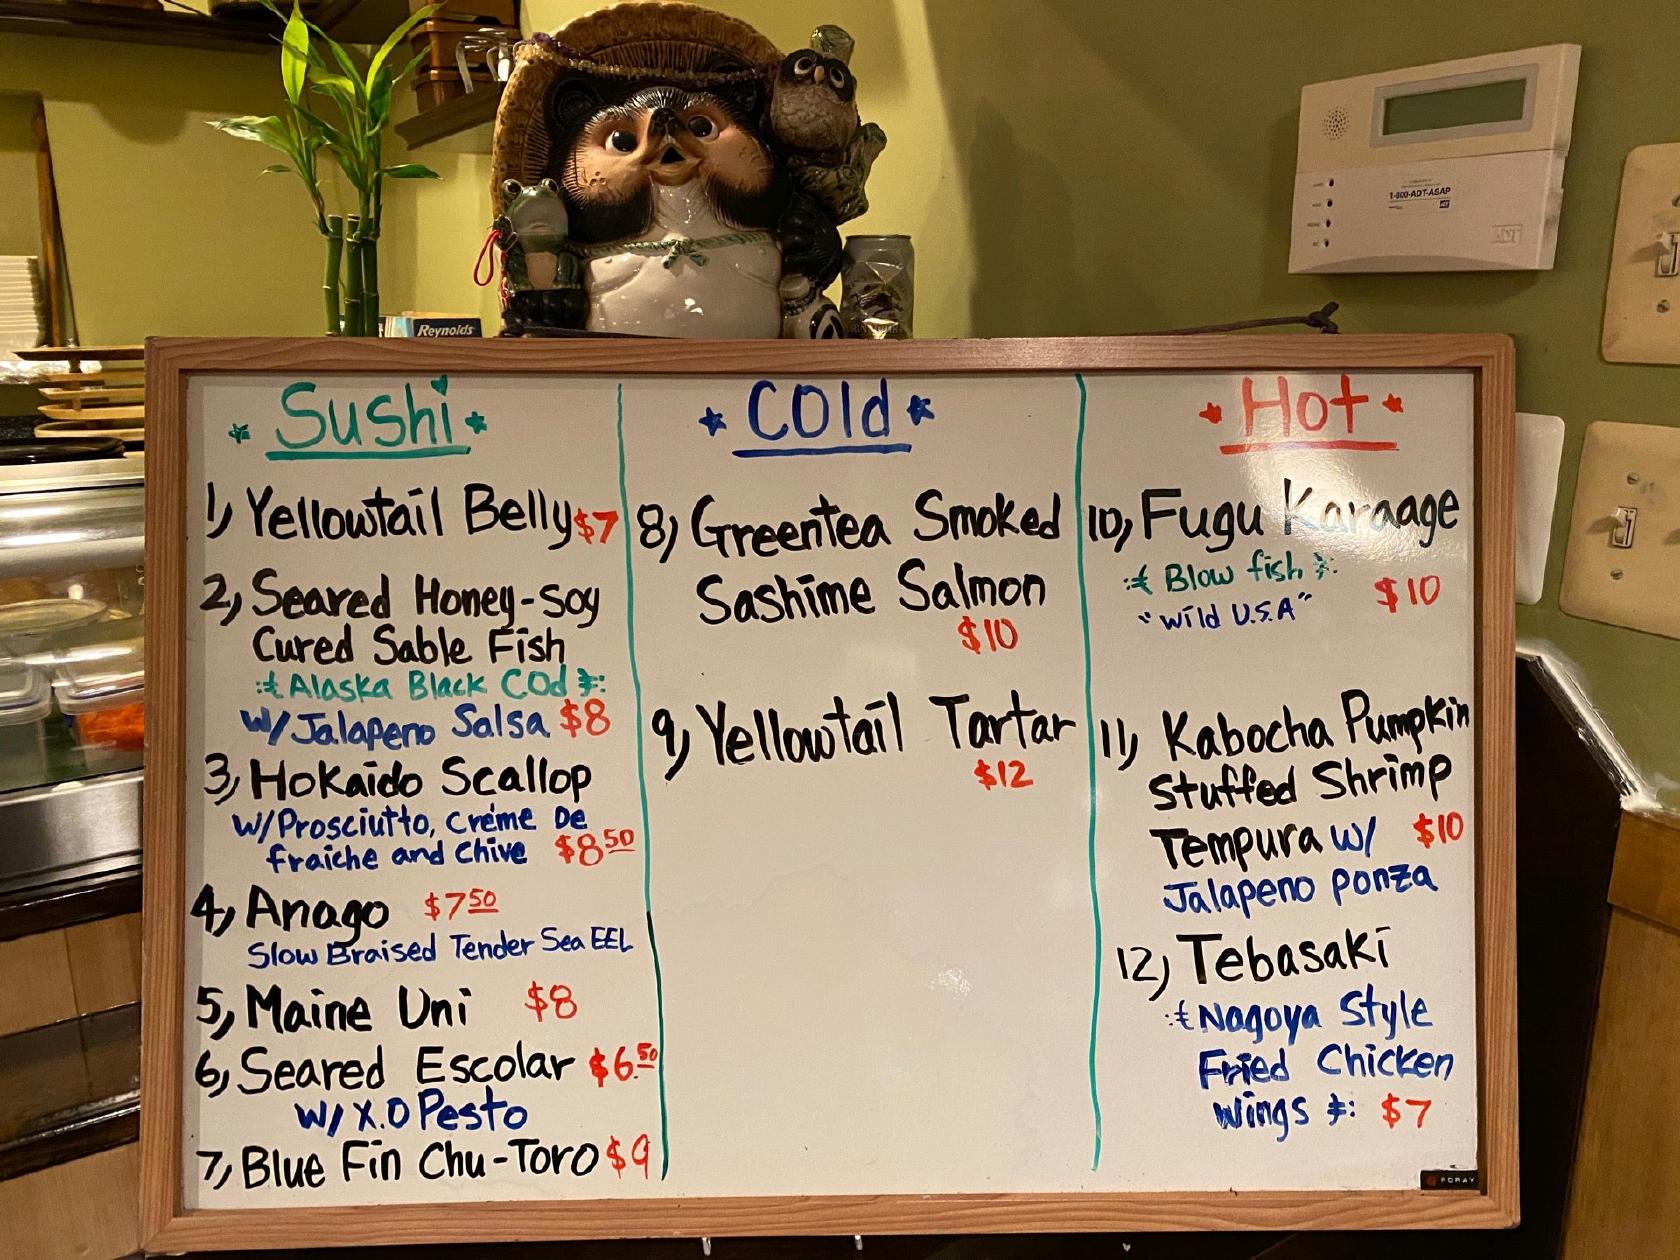 Reynolds
1-800-ADT-ASAP
ADT
Sushi
1) Yellowtail Belly $7
2) Seared Honey-soy
Cured Sable Fish
Alaska Black COd
w/ Jalapeno Salsa $8
3) Hokaido Scallop
w/ Prosciutto, créme De
fraiche and chive $8.50
4) Anago $7.50
Slow Braised Tender Sea EEL
5) Maine Uni $8
6) Seared Escolar $6.50
w/ X.O Pesto
7) Blue Fin Chu-Toro $9
COld
8) Greentea Smoked
Sashime Salmon
$10
9) Yellowtail Tartar
$12
Hot
10) Fugu Karaage
Blow fish
"wild U.S.A" $10
11) Kabocha Pumpkin
Stuffed Shrimp
Tempura w/ $10
Jalapeno ponza
12) Tebasaki
Nagoya Style
Fried Chicken
wings $7
FORAY